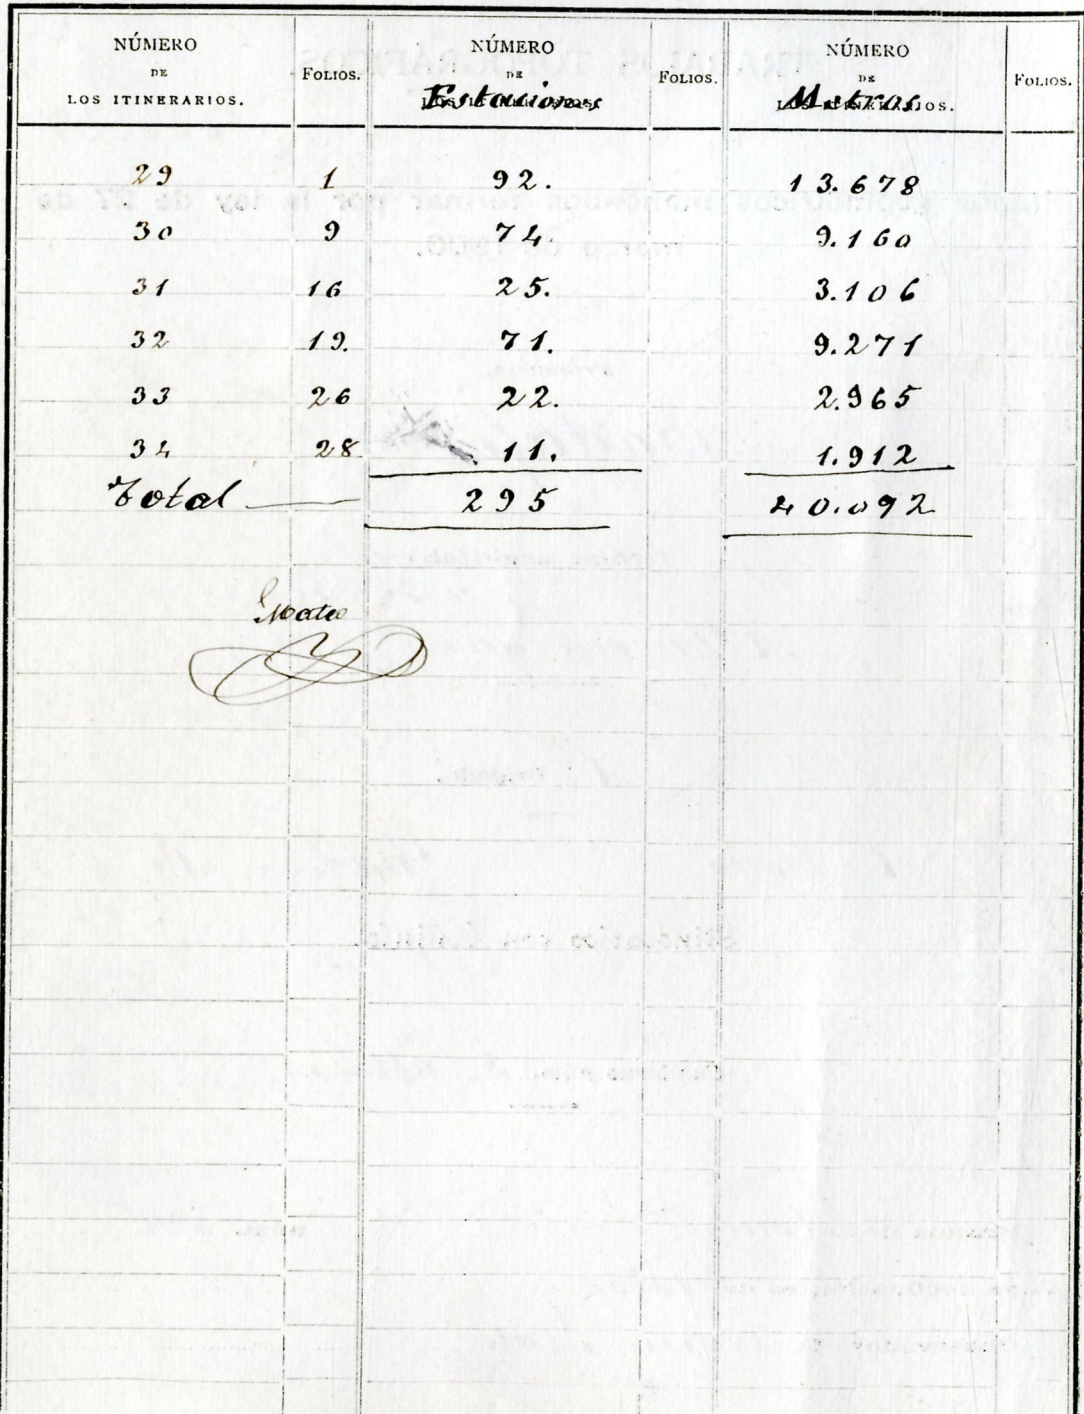 NÚMERO DE LOS ITINERARIOS. FOLIOS. NÚMERO DE Estaciones FOLIOS. NÚMERO DE Metros LOS ITINERARIOS. FOLIOS.
29 1 92. 13.678
30 9 74. 9.160
31 16 25. 3.106
32 19. 71. 9.271
33 26 22. 2.965
34 28 11. 1.912
Total 295 40.092
Mateo